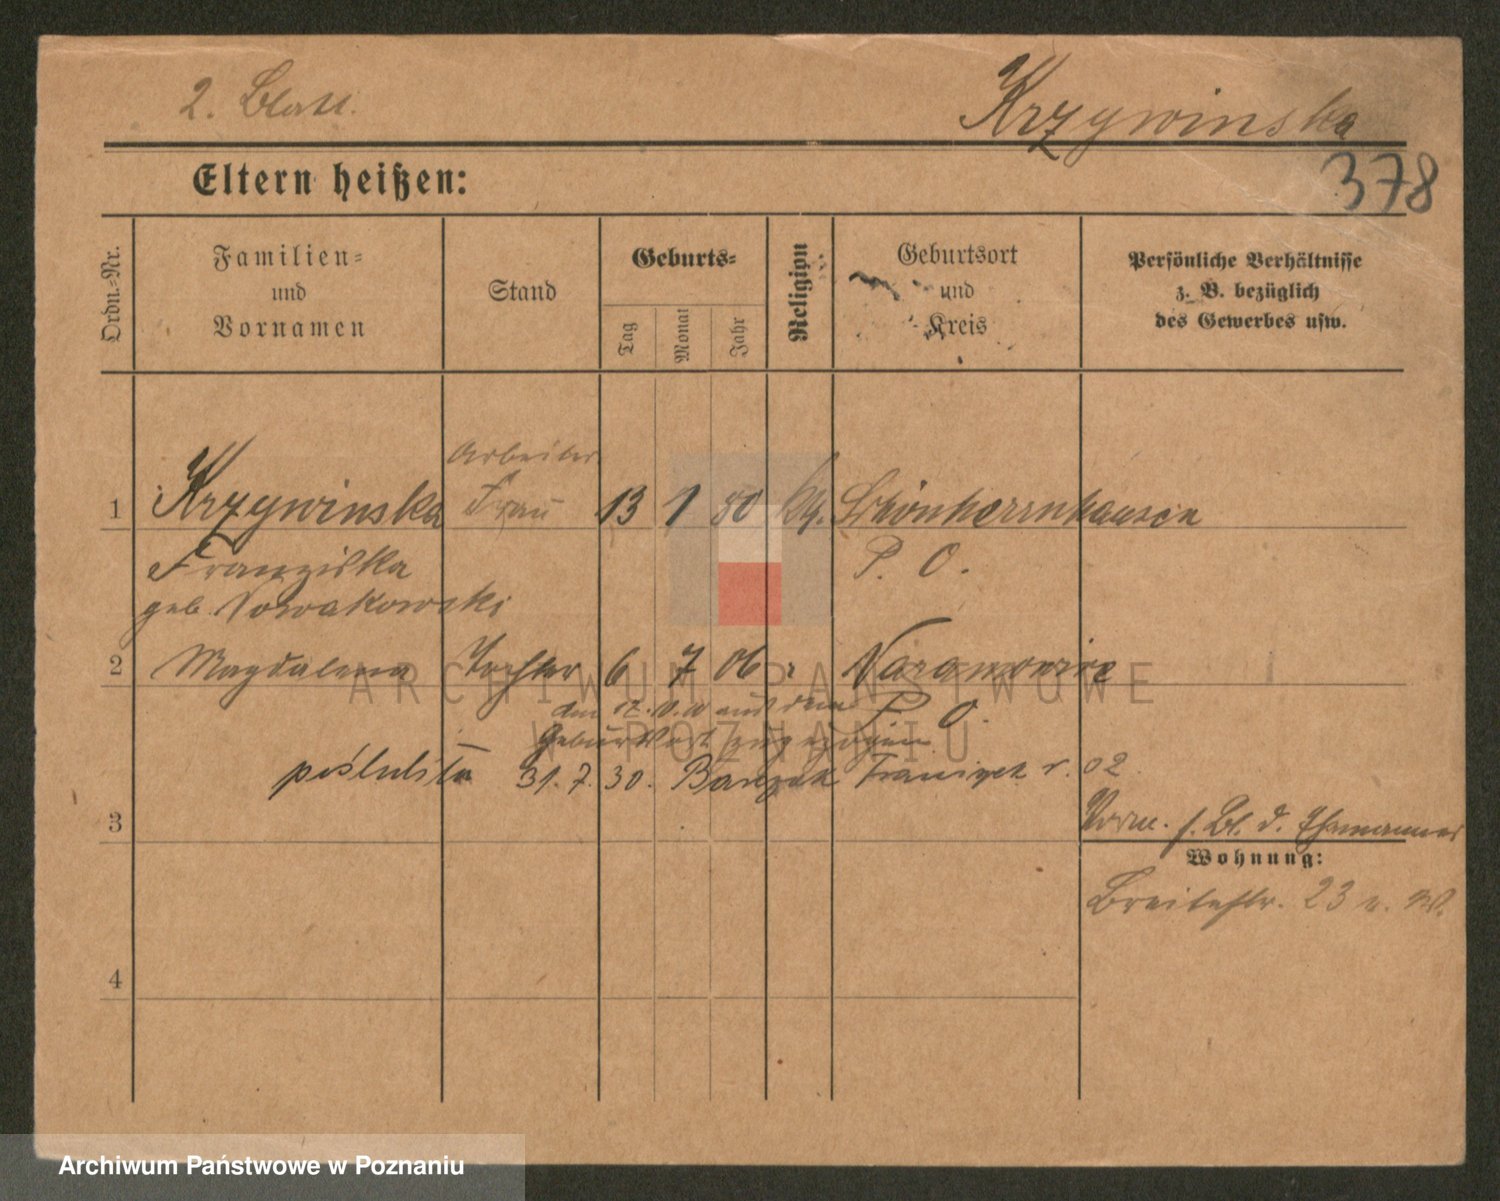 2. Blatt.
Krzywinska
378
Eltern heißen:
Ordn.-Nr.
Familien- und Vornamen
Stand
Geburts-
Tag
Monat
Jahr
Religion
Geburtsort und Kreis
Persönliche Verhältnisse z. B. bezüglich des Gewerbes usw.
Arbeiter
1 Krzywinska Frau 13 1 80 Schönherrnhausen
Franziska P. O.
geb. Nowakowski
2 Magdalena Tochter 6 7 06
den aus dem P. O.
Geburtsort zugezogen
31. 7. 30. Franciszek r. 02
3
Vorm. s. Bl. d. Ehemannes
Wohnung:
Breitestr. 23
4
ARCHIWUM PAŃSTWOWE
W POZNANIU
Archiwum Państwowe w Poznaniu